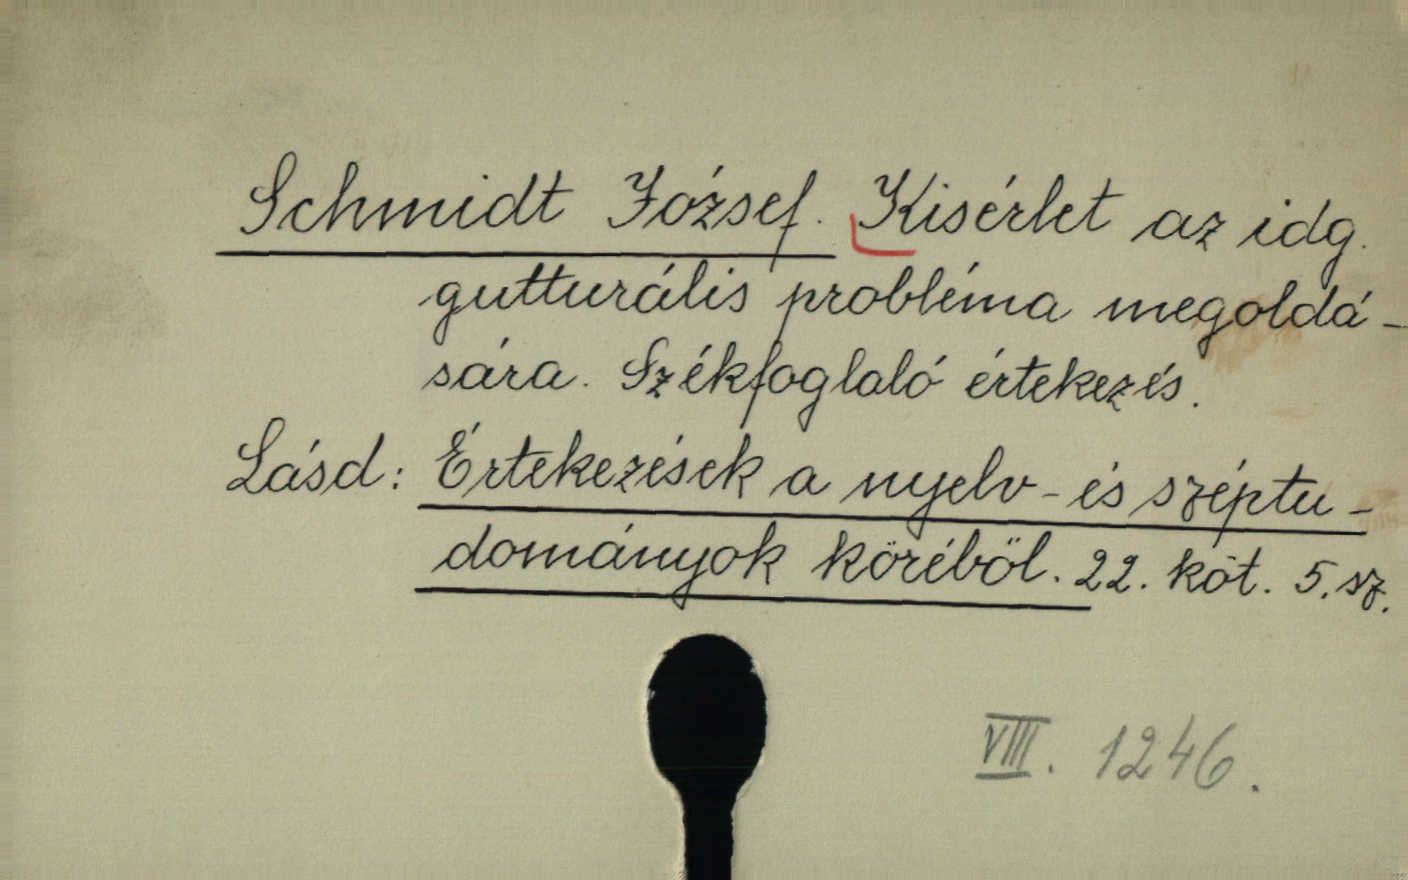 Schmidt József. Kisérlet az idg.
gutturális probléma megoldá-
sára. Székfoglaló értekezés.
Lásd: Értekezések a nyelv- és széptu-
dományok köréböl. 22. köt. 5. sz.
VIII. 1246.